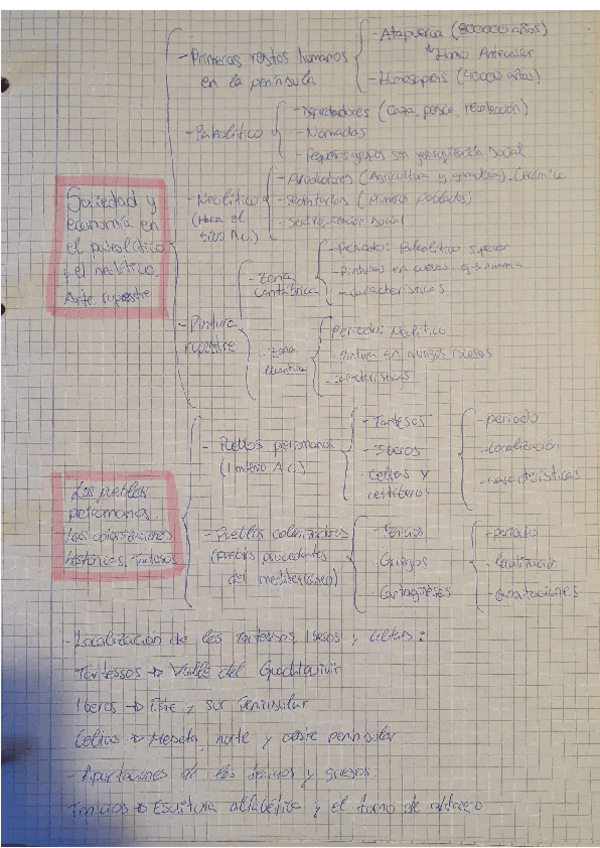 - Primeros restos humanos en la península
- Atapuerca (800000 años)
Homo Antecesor
- Homosapiens (40000 años)
- Paleolítico
- Depredadores (caza, pesca, recolección)
- Nomadas
- Pequeños grupos sin jerarquización social
Sociedad y
economía en
el paleolítico
y el neolítico.
Arte rupestre
- Neolítico
(Hacia el
5000 A.C.)
- Productores (Agricultura y ganadería). Cerámica
- Sedentarios (Primeros Poblados)
social
- Pintura
rupestre
- Zona
Cantábrica
- Periodo: Paleolítico superior
- Pinturas en cuevas
- Características
- Zona
Periodo: Neolítico
- Pintura en abrigos rocosos
- características
Los pueblos
prerromanos.
Las colonizaciones
históricas. Tartesos
- Pueblos prerromanos
(1 milenio A.C.)
- Tartesos
- Iberos
- Celtas y
celtíberos
- periodo
- Localización
- características
- Pueblos colonizadores
(pueblos procedentes
del mediterráneo)
- Fenicios
Griegos
- Cartagineses
- periodo
- localización
- Localización de los Tartessos, Iberos y celtas:
Tartessos → Valle del Guadalquivir
Iberos → Este y sur Peninsular
Celtas → Meseta, norte y oeste peninsular
- Aportaciones de los fenicios y griegos:
Fenicios → Escritura alfabética y el torno de alfarero